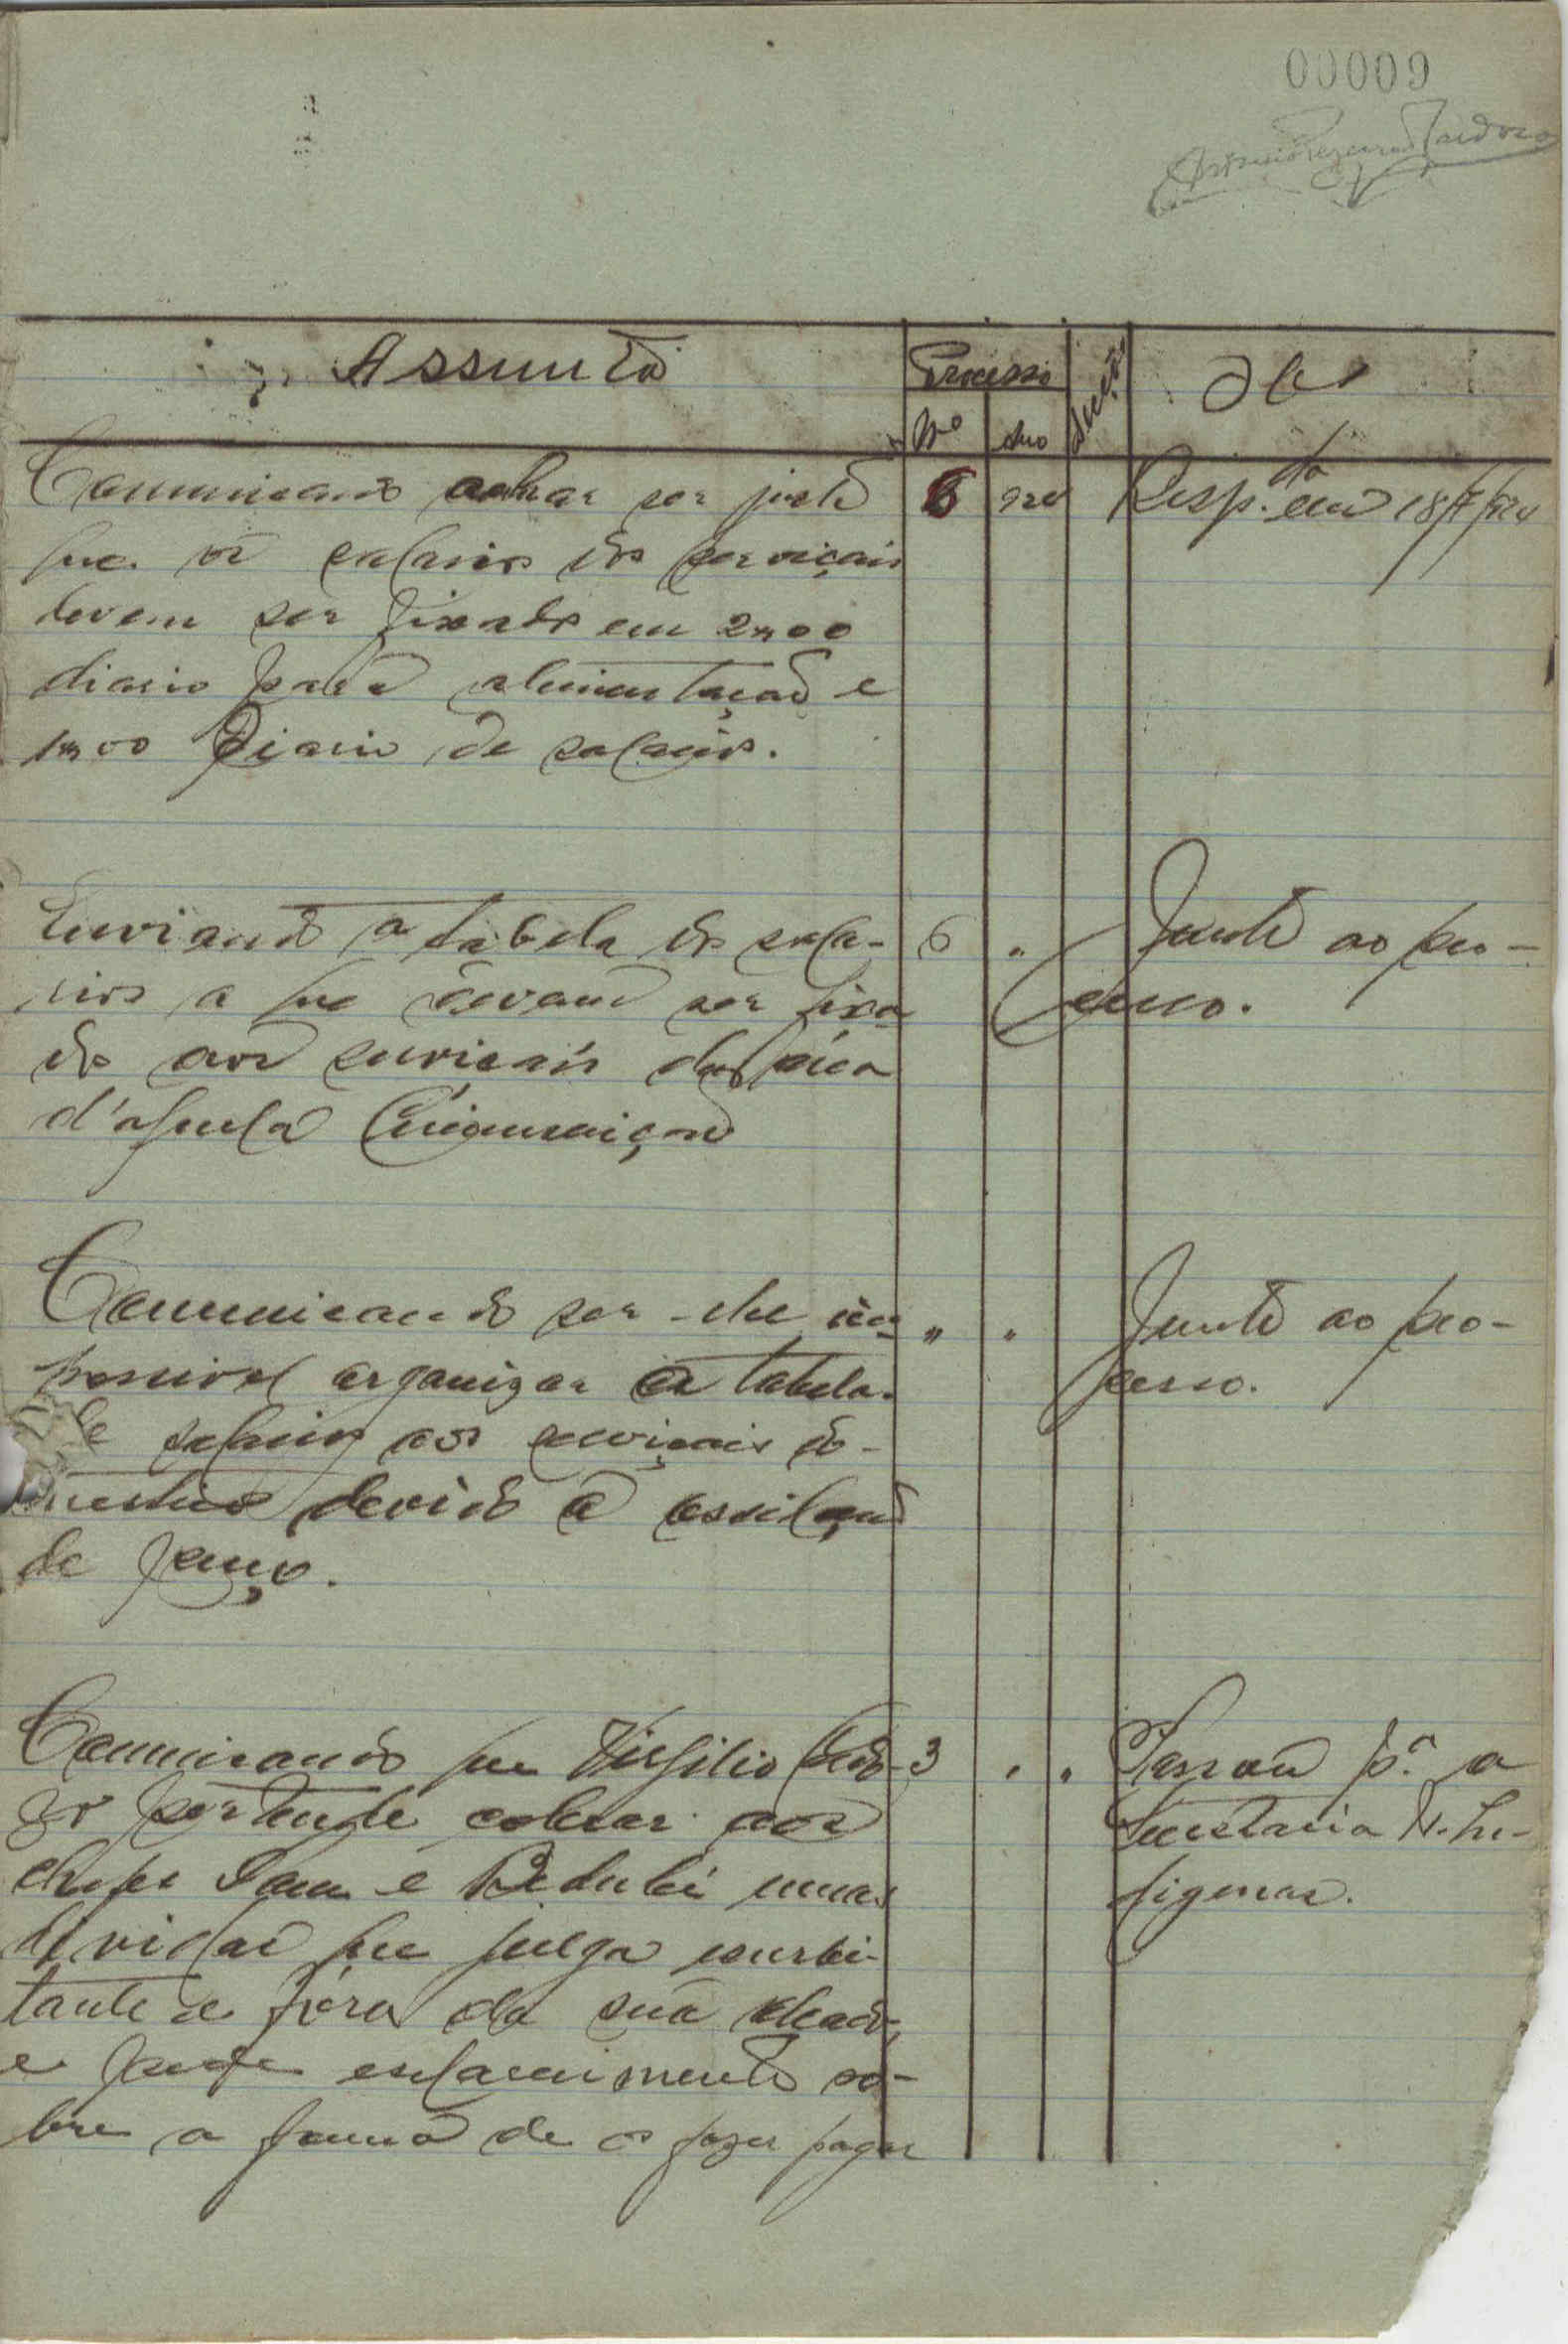 00009
Assunto
Processo
Nº
Ano
Secção
Obs
Comunicando achar ser justo
que os salarios dos serviçais
devem ser fixados em 2$00
diario para alimentação e
1$00 diario de salarios.
6
924
Resp.do em 18/7/924
Enviando a tabela dos sala-
rios a que devam ser fixa
dos aos serviçais
d'aquela Circunscrição
6
"
Junto ao pro-
cesso.
Comunicando ser-lhe im-
possivel organizar a tabela
de salarios aos serviçais do-
mesticos devido á oscilação
de preço.
"
"
Junto ao pro-
cesso.
Comunicando que Virgilio
pertende cobrar aos
chefes e umas
dividas que julga exorbi-
tante e fóra da sua
e pede esclarecimento so-
bre a forma de os fazer pagar
3
"
"
Passou p.ª a
Secretaria N. In-
digenas.